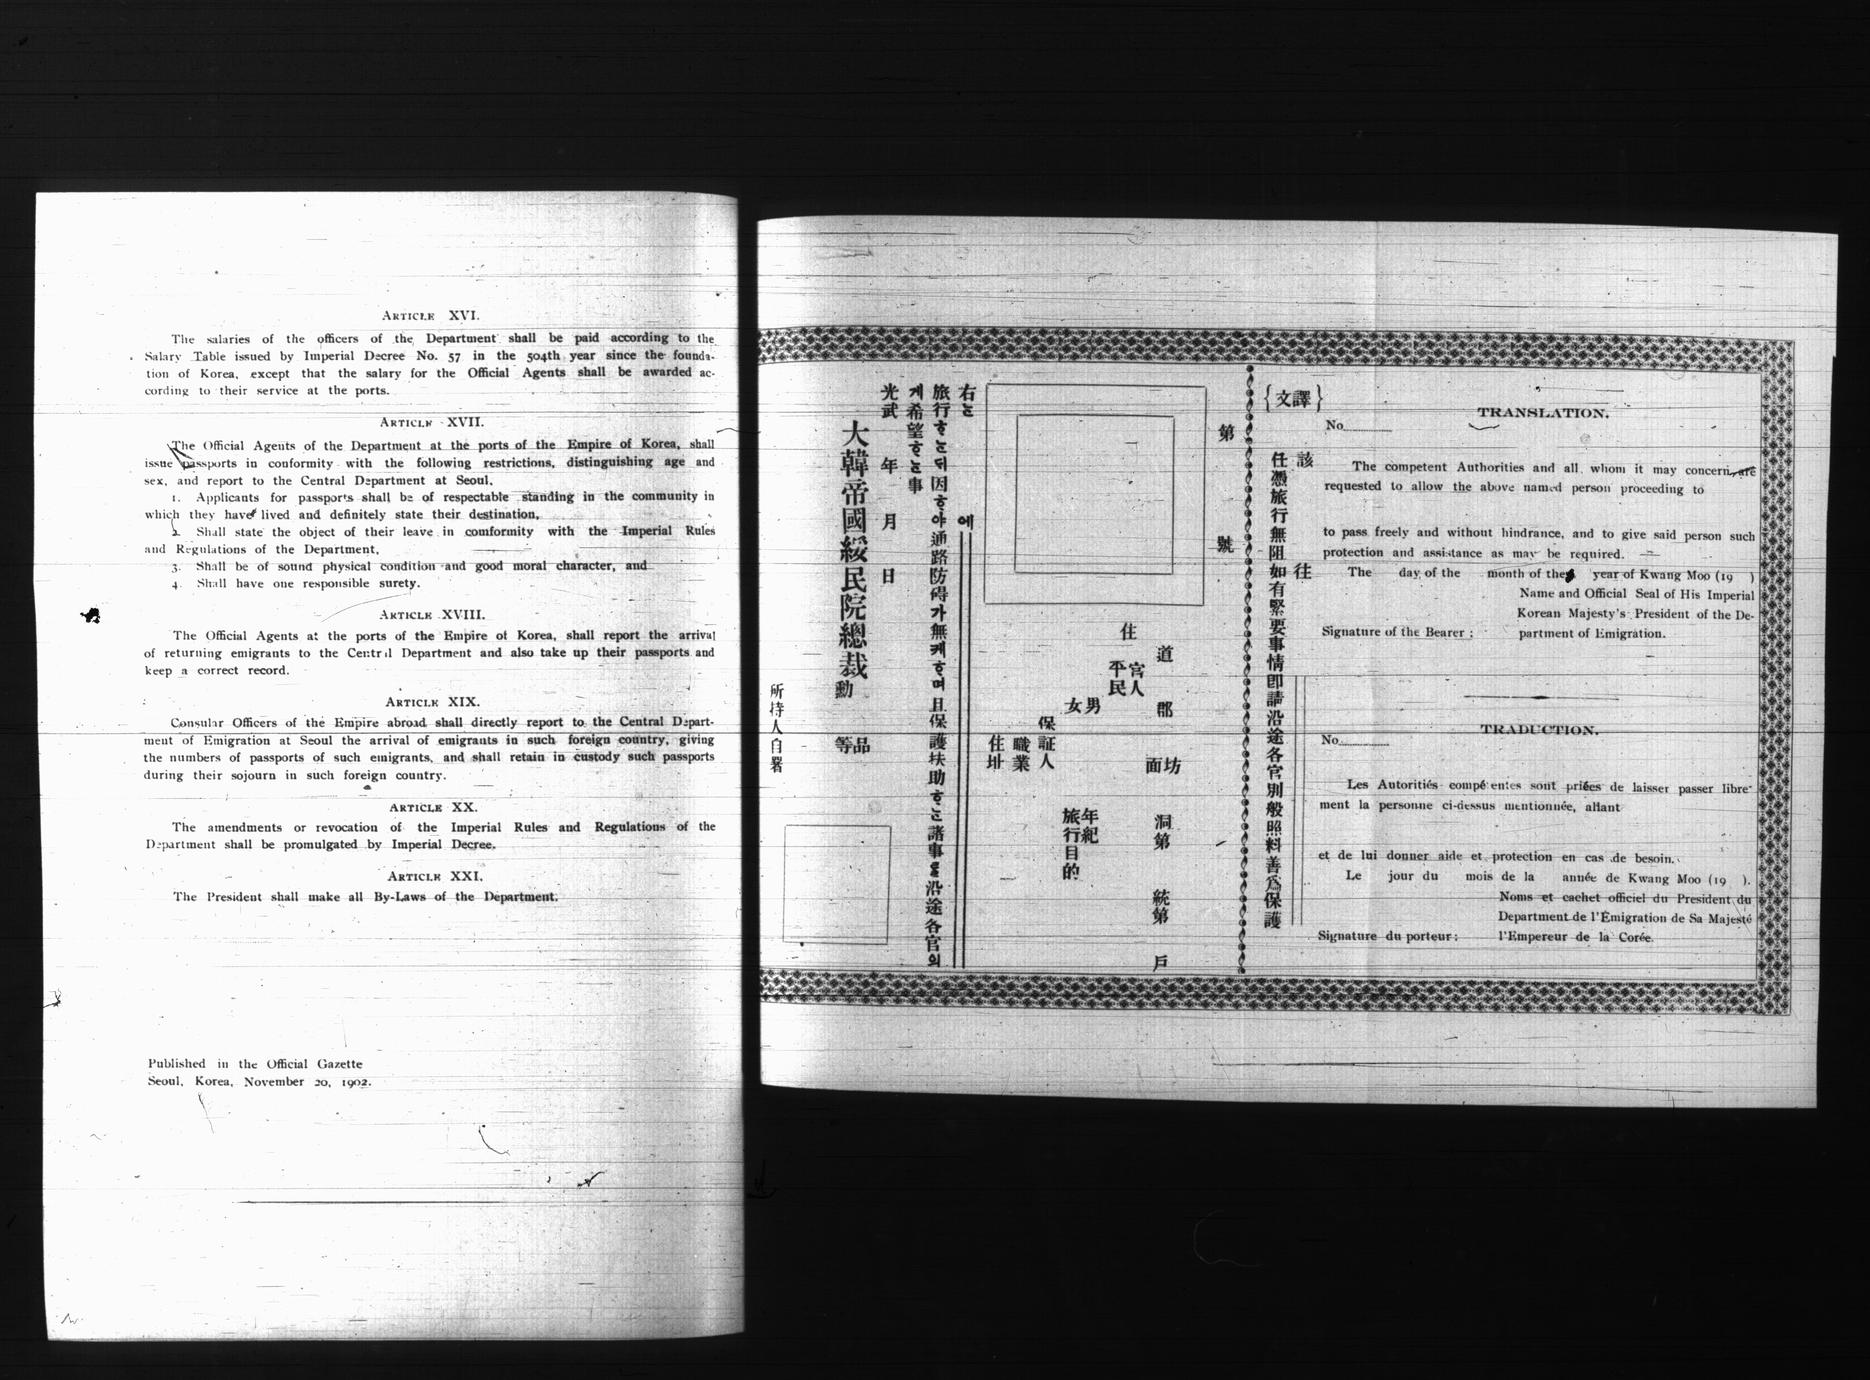 ARTICLE XVI.
The salaries of the officers of the Department shall be paid according to the
Salary Table issued by Imperial Decree No. 57 in the 504th year since the founda-
tion of Korea, except that the salary for the Official Agents shall be awarded ac-
cording to their service at the ports.
ARTICLE XVII.
The Official Agents of the Department at the ports of the Empire of Korea, shall
issue passports in conformity with the following restrictions, distinguishing age and
sex, and report to the Central Department at Seoul.
1. Applicants for passports shall be of respectable standing in the community in
which they have lived and definitely state their destination,
2. Shall state the object of their leave in comformity with the Imperial Rules
and Regulations of the Department,
3. Shall be of sound physical condition and good moral character, and
4. Shall have one responsible surety.
ARTICLE XVIII.
The Official Agents at the ports of the Empire of Korea, shall report the arrival
of returning emigrants to the Central Department and also take up their passports and
keep a correct record.
ARTICLE XIX.
Consular Officers of the Empire abroad shall directly report to the Central Depart-
ment of Emigration at Seoul the arrival of emigrants in such foreign country, giving
the numbers of passports of such emigrants, and shall retain in custody such passports
during their sojourn in such foreign country.
ARTICLE XX.
The amendments or revocation of the Imperial Rules and Regulations of the
Department shall be promulgated by Imperial Decree.
ARTICLE XXI.
The President shall make all By-Laws of the Department.
Published in the Official Gazette
Seoul, Korea, November 20, 1902.
第 號
道 郡 面坊 洞第 統第 戶
住
官人
平民
男女
年紀
旅行目的
保証人
職業
住址
右는 에
旅行ᄒᆞ는ᄃᆡ因ᄒᆞ야通路防碍가無케ᄒᆞ며且保護扶助ᄒᆞ는諸事를沿途各官의
게希望ᄒᆞ는事
光武 年 月 日
大韓帝國綏民院總裁
勳 等品
所持人自署
{文譯}
該 往
任憑旅行無阻如有緊要事情卽請沿途各官別般照料善爲保護
TRANSLATION.
No
The competent Authorities and all whom it may concern are
requested to allow the above named person proceeding to
to pass freely and without hindrance, and to give said person such
protection and assistance as may be required.
The day of the month of the year of Kwang Moo (19 )
Name and Official Seal of His Imperial
Korean Majesty's President of the De-
Signature of the Bearer : partment of Emigration.
TRADUCTION.
No
Les Autoriités compétentes sont priées de laisser passer libre-
ment la personne ci-dessus mentionnée, allant
et de lui donner aide et protection en cas de besoin.
Le jour du mois de la année de Kwang Moo (19 ).
Noms et cachet officiel du President du
Department de l'Émigration de Sa Majesté
Signature du porteur : l'Empereur de la Corée.